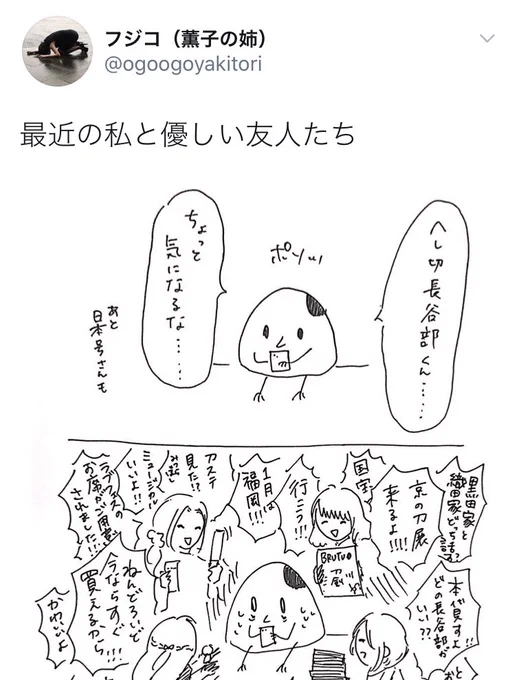 フジコ（薫子の姉）
@ogoogoyakitori
最近の私と優しい友人たち
へし切長谷部くん……
ポソ…
ちょっと
気になるな……
あと
日本号さんも
黒田家と
織田家どっち話す?
京の刀展
来るよ!!!!
国宝
行こう!!!
1月は
福岡!!!!
刀ステ
見た!?
ミュージカル
いいよ!!!
ラブフェスの
お席がご用意
されました!!!
本貸すよ!!
どの長谷部が
いい??
BRUTUS
刀剣
ねんどろいど
今ならすぐ
買えるから!!!
かわいいよ